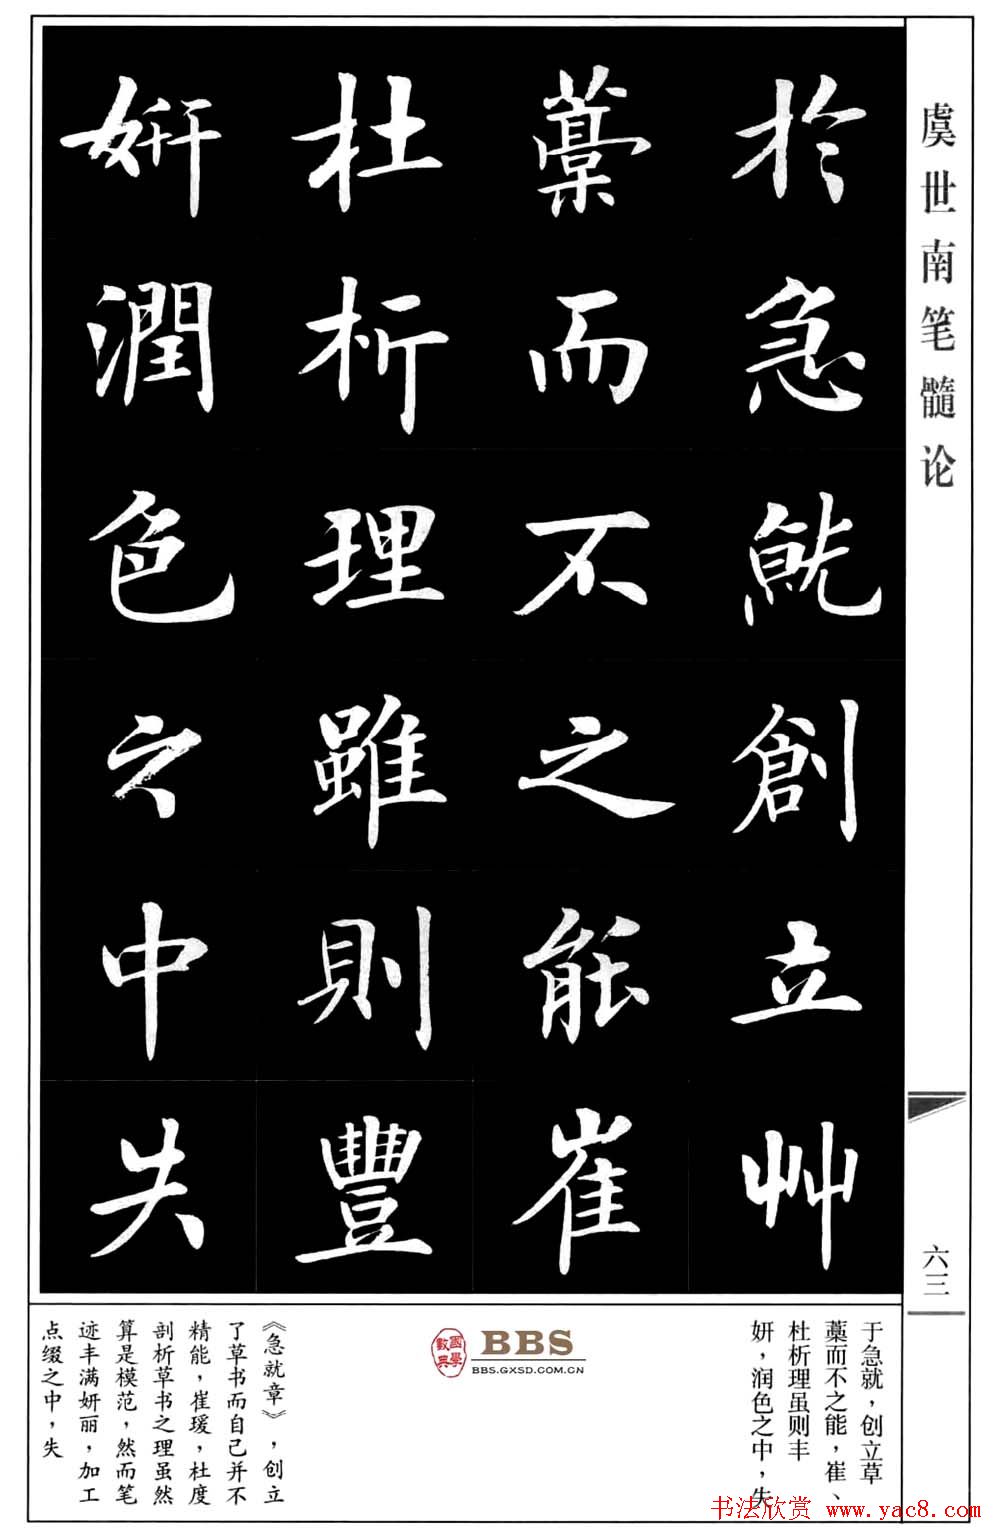 虞世南笔髓论
於急就創立艸
藁而不之能崔
杜析理雖則豐
妍潤色之中失
六三
于急就，创立草
藁而不之能，崔、
杜析理虽则丰
妍，润色之中，失
國學數典
BBS
BBS.GXSD.COM.CN
《急就章》，创立
了草书而自己并不
精能，崔瑗，杜度
剖析草书之理虽然
算是模范，然而笔
迹丰满妍丽，加工
点缀之中，失
书法欣赏 www.yac8.com